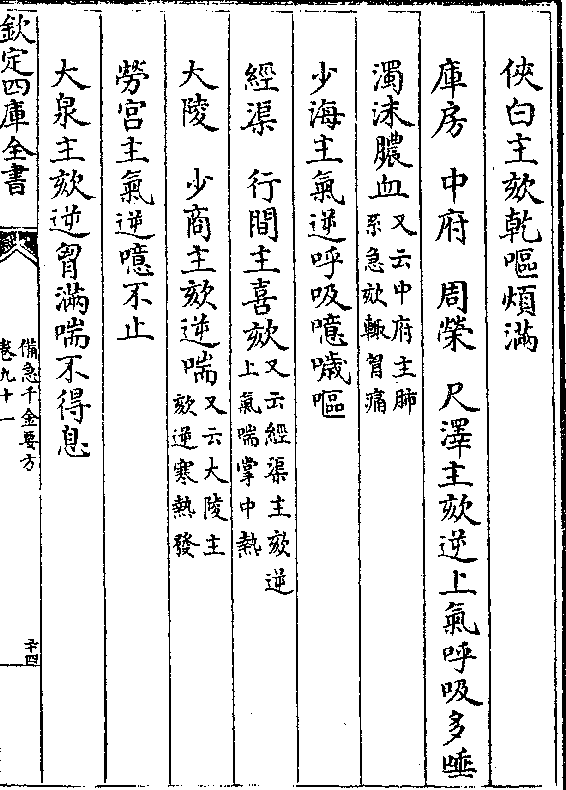 俠白主欬乾嘔煩滿
庫房　中府　周榮　尺澤主欬逆上氣呼吸多唾
濁沫膿血又云中府主肺系急欬輙胷痛
少海主氣逆呼吸噫噦嘔
經渠　行間主喜欬又云經渠主欬逆上氣喘掌中熱
大陵　少商主欬逆喘又云大陵主欬逆寒熱發
勞宫主氣逆噫不止
大泉主欬逆胷滿喘不得息
欽定四庫全書
備急千金要方
卷九十一
二十四